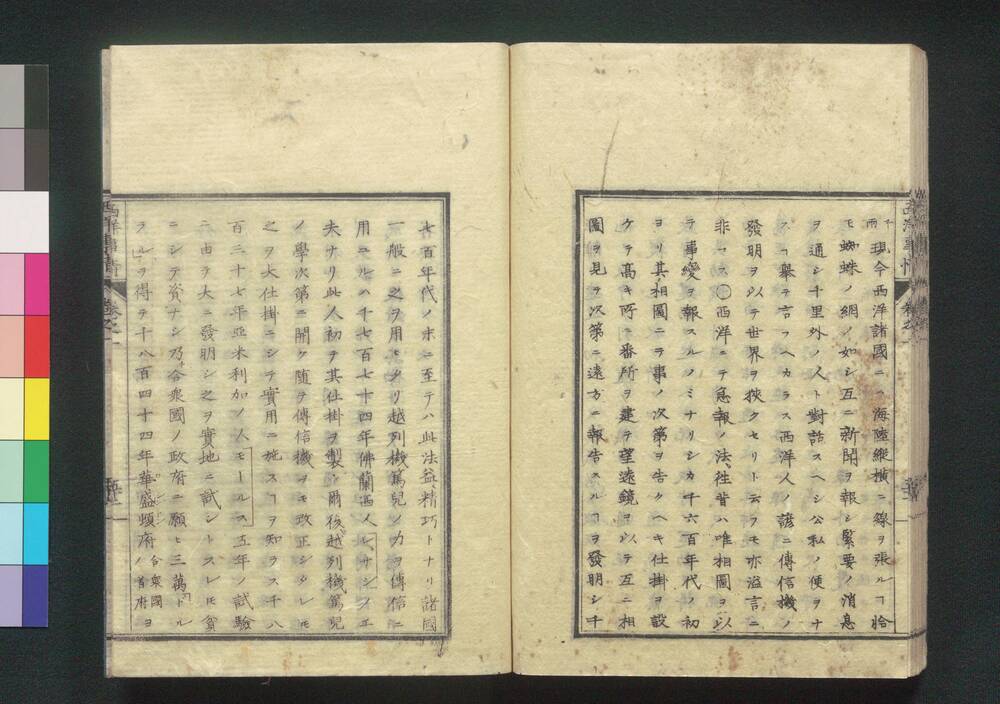 現今西洋諸國ニハ海陸縱横ニ線ヲ張ルヿ恰
モ蜘蛛ノ網ノ如シ互ニ新聞ヲ報シ緊要ノ消息
ヲ通シ千里外ノ人ト對話スヘシ公私ノ便ヲナ
スヿ擧テ言フヘカラス西洋人ノ諺ニ傳信機ノ
發明ヲ以テ世界ヲ挾クセリト云フモ亦溢言ニ
非ス○西洋ニテ急報ノ法、徃昔ハ唯相圖ヲ以
テ事變ヲ報スルノミナリシカ千六百年代ノ初
ヨリ其相圖ニテ事ノ次第ヲ告クヘキ仕掛ヲ設
ケテ髙キ所ニ番所ヲ建テ望遠鏡ヲ以テ互ニ相
圖ヲ見テ次第ニ遠方ニ報告スルヿヲ發明シ千
七百年代ノ末ニ至テハ此法益精巧トナリ諸國
一般ニ之ヲ用ヒタリ越列機篤兒ノ力ヲ傳信ニ
用ユルハ千七百七十四年佛蘭西人レサジヲエ
夫ナリ此人初テ其仕掛ヲ製シ爾後越列機篤兒
ノ學次第ニ開ケ随テ傳信機ヲモ改正シタレモ
之ヲ大仕掛ニシテ實用ニ施スヿヲ知ラス千八
百三十七年亞米利加ノ人モールス五年ノ試驗
ニ由テ大ニ發明シ之ヲ實地ニ試シトスレモ貧
ニシテ資ナシ乃合衆國ノ政府ニ願ヒ三萬トル
ラルヲ得テ千八百四十四年華盛頓府合衆國ノ首府ヨ